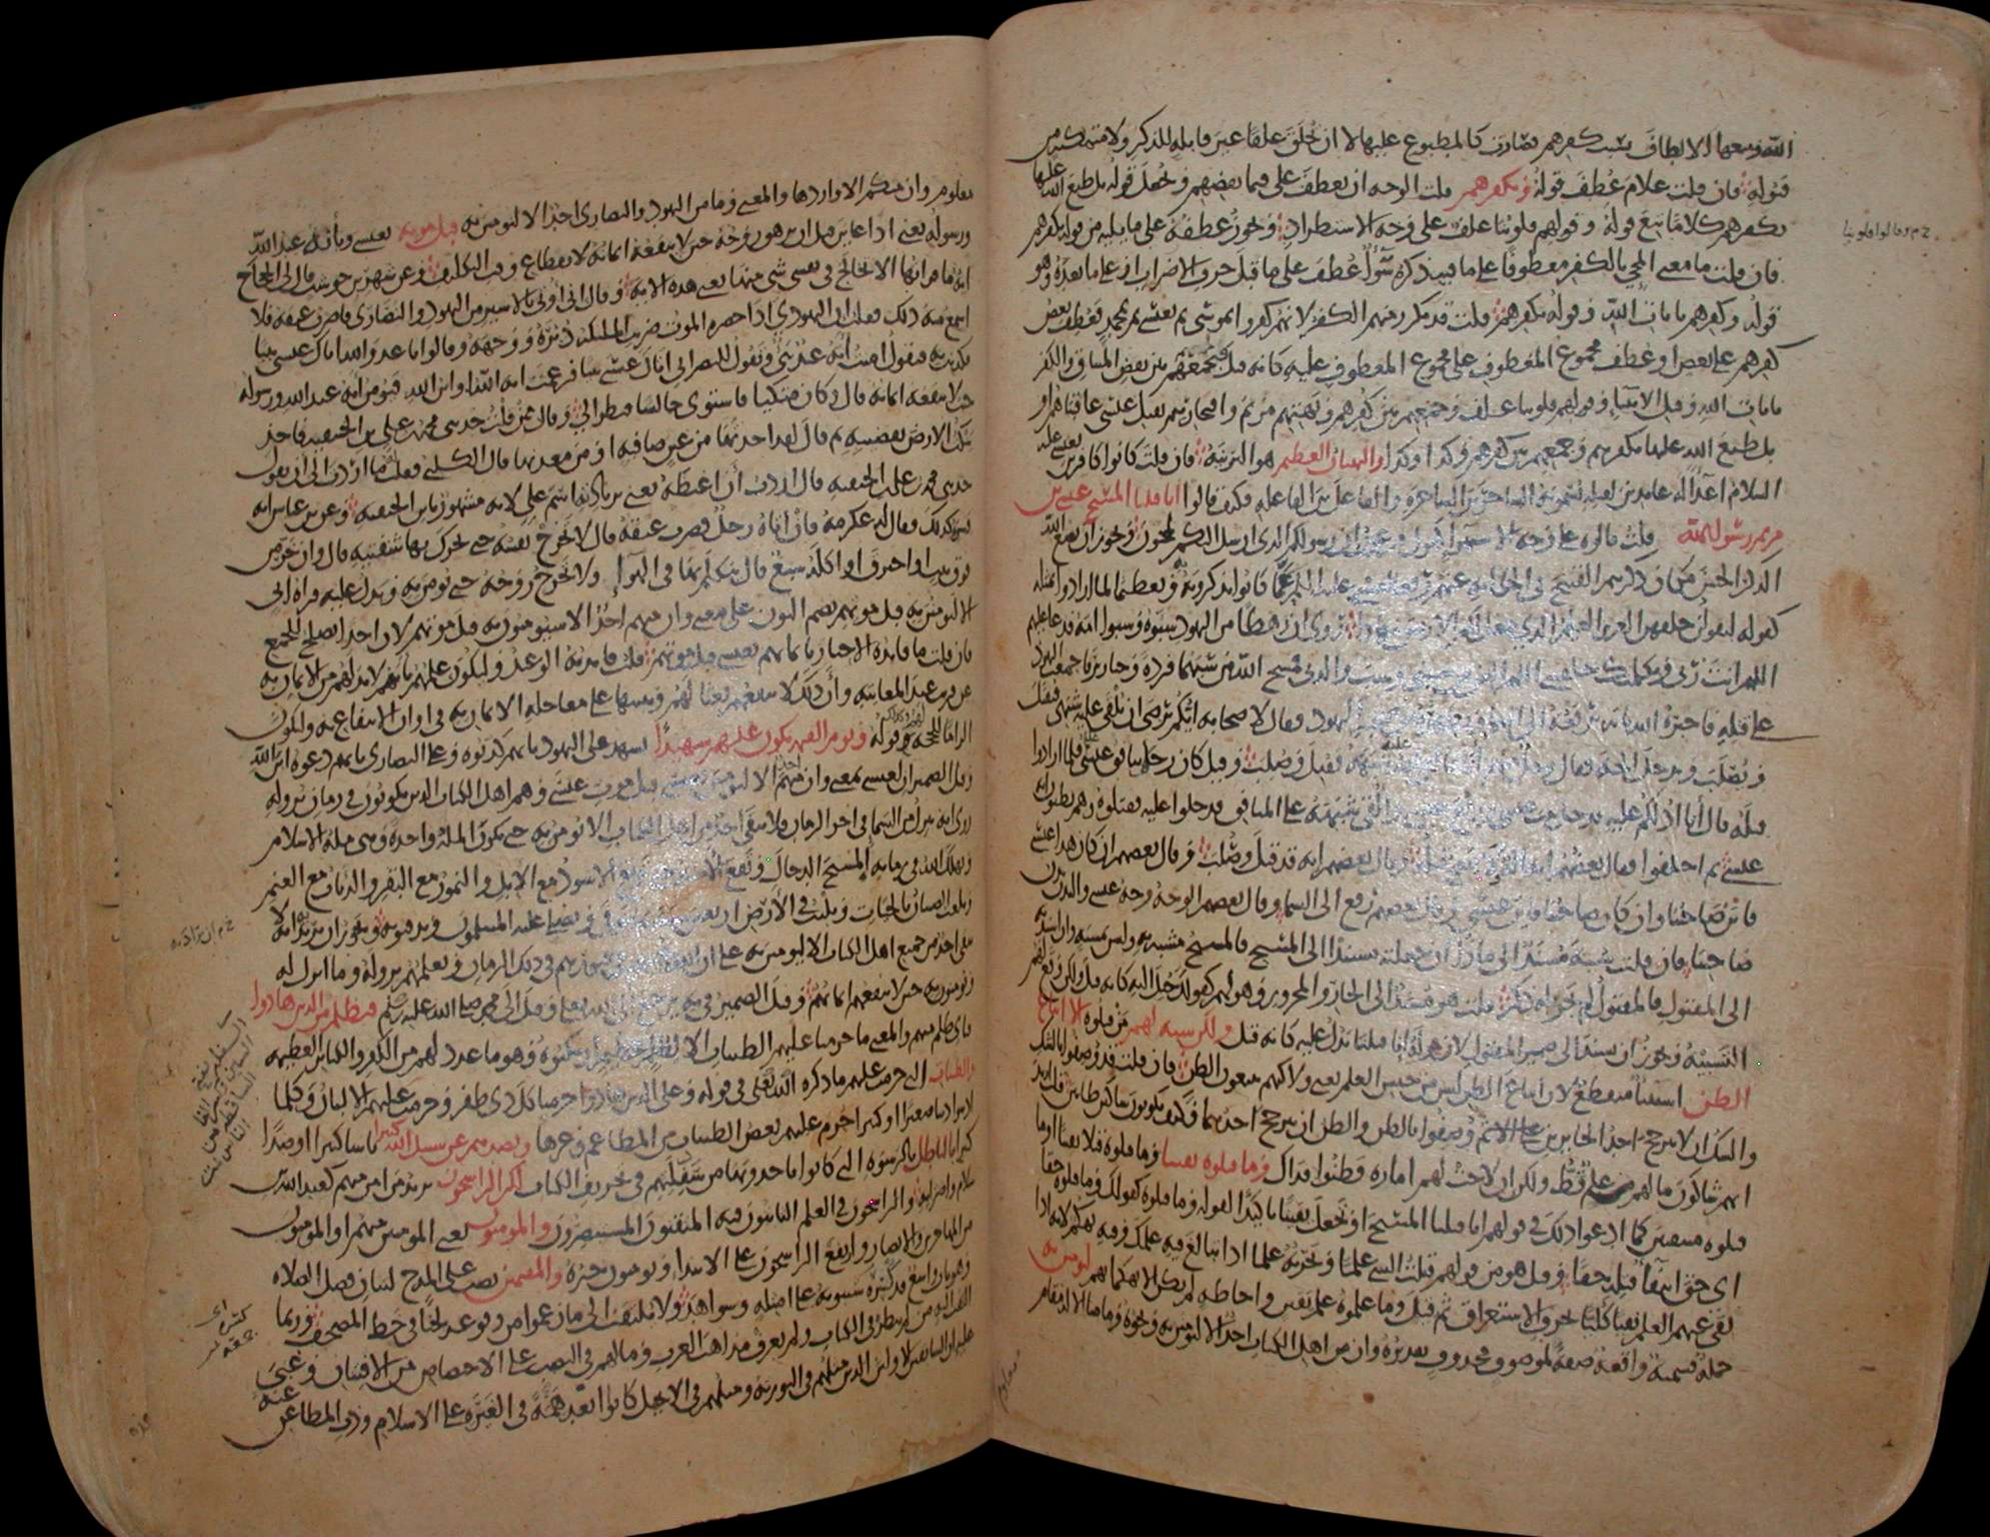 الله ومنعها الالطاف بسبب كفرهم فصارت كالمطبوع عليها لا ان تخلق غلفا غير قابلة للذكر ولا متمكنة من
قبوله فان قلت علام عطف قوله وبكفرهم قلت الوجه ان يعطف على فبما نقضهم ونجعل قوله بل طبع الله عليها
بكفرهم كلاما تبع قوله وقولهم قلوبنا غلف على وجه الاستطراد ويجوز عطفه على ما يليه من قوله بكفرهم
فان قلت ما معنى المجي بالكفر معطوفا على ما فيه ذكره سواء عطف على ما قبل حرف الاضراب او على ما بعده وهو
قوله وكفرهم بايات الله وقوله بكفرهم قلت قد تكرر منهم الكفر لانهم كفروا بموسى ثم بعيسى ثم بمحمد فعطف بعض
كفرهم على بعض او عطف مجموع المعطوف على مجموع المعطوف عليه كانه قيل فبجمعهم بين نقض الميثاق والكفر
بايات الله وقتل الانبياء وقولهم قلوبنا غلف وجمعهم بين كفرهم وبهتهم مريم وافتخارهم بقتل عيسى عاقبناهم او
بل طبع الله عليها بكفرهم وجمعهم بين كفرهم وكذا وكذا والبهتان العظيم هو التزنية فان قلت كانوا كافرين بعيسى عليه
السلام اعداء له عامدين لقتله يسمونه الساحر بن الساحرة والفاعل بن الفاعلة فكيف قالوا انا قتلنا المسيح عيسى بن
مريم رسول الله قلت قالوه على وجه الاستهزاء كقول فرعون ان رسولكم الذي ارسل اليكم لمجنون ويجوز ان يضع الله
الذكر الحسن مكان ذكرهم القبيح في الحكاية عنهم رفعا لعيسى عليه السلم عما كانوا يذكرونه وتعظيما لما ارادوا بمثله
كقوله ليقولن خلقهن العزيز العليم الذي جعل لكم الارض مهدا روى ان رهطا من اليهود سبوه وسبوا امه فدعا عليهم
اللهم انت ربي وبكلمتك خلقتني اللهم العن من سبني وسب والدتي فمسخ الله من سبهما قردة وخنازير فاجمعت اليهود
على قتله فاخبره الله بانه يرفعه الى السماء ويطهره من صحبة اليهود فقال لاصحابه ايكم يرضى ان يلقى عليه شبهي فيقتل
ويصلب ويدخل الجنة فقال رجل منهم انا فالقى عليه شبهه فقتل وصلب وقيل كان رجلا ينافق عيسى فلما ارادوا
قتله قال انا ادلكم عليه فدخل بيت عيسى فرفع عيسى والقى شبهه على المنافق فدخلوا عليه فقتلوه وهم يظنون انه
عيسى ثم اختلفوا فقال بعضهم انه اله لا يصح قتله وقال بعضهم انه قد قتل وصلب وقال بعضهم ان كان هذا عيسى
فاين صاحبنا وان كان صاحبنا فاين عيسى وقال بعضهم رفع الى السماء وقال بعضهم الوجه وجه عيسى والبدن بدن
صاحبنا فان قلت شبه مسند الى ماذا ان جعلته مسندا الى المسيح فالمسيح مشبه به وليس بمشبه وان اسندته
الى المقتول فالمقتول لم يجر له ذكر قلت هو مسند الى الجار والمجرور وهو لهم كقولك خيل اليه كانه قيل ولكن وقع لهم
التشبيه ويجوز ان يسند الى ضمير المقتول لان قوله انا قتلنا يدل عليه كانه قيل ولكن شبه لهم من قتلوه الا اتباع
الظن استثناء منقطع لان اتباع الظن ليس من جنس العلم يعني ولاكنهم يتبعون الظن فان قلت قد وصفوا بالشك
والشك ان لا يترجح احد الجائزين ثم وصفوا بالظن والظن ان يترجح احدهما فكيف يكونون شاكين ظانين قلت اريد
انهم شاكون ما لهم من علم قط ولكن ان لاحت لهم امارة فظنوا فذاك وما قتلوه يقينا وما قتلوه قتلا يقينا او ما
قتلوه متيقنين كما ادعوا ذلك في قولهم انا قتلنا المسيح او تجعل يقينا تاكيدا لقوله وما قتلوه كقولك وما قتلوه حقا
اي حق انتفاء قتله حقا وقيل هو من قولهم قتلت الشي علما ونحرته علما اذا تبالغ فيه علمك وفيه تهكم لانه اذا
نفى عنهم العلم نفيا كليا بحرف الاستغراق ثم قيل وما علموه علم يقين واحاطة لم يكن الا تهكما بهم ليومنن به
جملة قسمية واقعة صفة لموصوف محذوف تقديره وان من اهل الكتاب احد الا ليومنن به ونحوه وما منا الا له مقام
معلوم وان منكم الا واردها والمعنى وما من اليهود والنصارى احد الا ليومنن به قبل موته بعيسى وبانه عبد الله
ورسوله يعني اذا عاين قبل ان تزهق روحه حين لا ينفعه ايمانه لانقطاع وقت التكليف وعن شهر بن حوشب قال لي الحجاج
اية ما قراتها الا تخالج في نفسي شي منها يعني هذه الاية وقال اني اوتى بالاسير من اليهود والنصارى فاضرب عنقه فلا
اسمع منه ذلك فقلت ان اليهودي اذا حضره الموت ضربت الملئكة دبره ووجهه وقالوا يا عدو الله اتاك عيسى نبيا
فكذبت به فيقول امنت انه عبد نبي وتقول للنصراني اتاك عيسى نبيا فزعمت انه الله او ابن الله فيومن انه عبد الله ورسوله
حيث لا ينفعه ايمانه قال وكان متكيا فاستوى جالسا فنظر الي وقال ممن قلت حدثني محمد بن علي بن الحنفية فاخذ
ينكت الارض بقضيبه ثم قال لقد اخذتها من عين صافية او من معدنها قال الكلبي فقلت له ما اردت الى ان تقول
حدثني محمد بن علي بن الحنفية قال اردت ان اغيظه يعني بزيادة اسم علي لانه مشهور بابن الحنفية وعن بن عباس انه
فسره كذلك فقال له عكرمة فان اتاه رجل فضرب عنقه قال لا تخرج نفسه حتى يحرك بها شفتيه قال وان خر من
فوق بيت او احترق او اكله سبع قال يتكلم بها في الهواء ولا تخرج روحه حتى يومن به وتدل عليه قراة ابي
الا ليومنن به قبل موتهم بضم النون على معنى وان منهم احد الا سيومنون به قبل موتهم لان احدا يصلح للجمع
فان قلت ما فائدة الاخبار بايمانهم بعيسى قبل موتهم قلت فائدته الوعيد وليكون علمهم بانهم لابد لهم من الايمان به
عن قريب عند المعاينة وان ذلك لا ينفعهم بعثا لهم وتنبيها على معاجلة الايمان به في اوان الانتفاع به وليكون
الزاما للحجة وكذلك قوله ويوم القيمة يكون عليهم شهيدا يشهد على اليهود بانهم كذبوه وعلى النصارى بانهم دعوه ابن الله
وقيل الضميران لعيسى بمعنى وان منهم احد الا ليومنن بعيسى قبل موت عيسى وهم اهل الكتاب الذين يكونون في زمان نزوله
روى انه ينزل من السماء في اخر الزمان فلا يبقى احد من اهل الكتاب الا يومن به حتى تكون الملة واحدة وهي ملة الاسلام
ويهلك الله في زمانه المسيح الدجال وتقع الامنة حتى ترتع الاسود مع الابل والنمور مع البقر والذئاب مع الغنم
ويلعب الصبيان بالحيات ويلبث في الارض اربعين سنة ثم يتوفى ويصلي عليه المسلمون ويدفنونه ويجوز ان يريد انه لا
يبقى احد من جميع اهل الكتاب الا ليومنن به على ان الله يحييهم في قبورهم في ذلك الزمان ويعلمهم نزوله وما انزل له
ويومنون به حين لا ينفعهم ايمانهم وقيل الضمير في به يرجع الى الله تعالى وقيل الى محمد صلى الله عليه وسلم فبظلم من الذين هادوا
فباي ظلم منهم والمعنى ما حرمنا عليهم الطيبات الا لظلم عظيم ارتكبوه وهو ما عدد لهم من الكفر والكبائر العظيمة
والطيبات التي حرمت عليهم ما ذكره الله تعالى في قوله وعلى الذين هادوا حرمنا كل ذي ظفر وحرمت عليهم الالبان وكلما
اذنبوا ذنبا صغيرا او كبيرا حرم عليهم بعض الطيبات من المطاعم وغيرها وبصدهم عن سبيل الله كثيرا ناسا كثيرا او صدا
كثيرا بالباطل بالرشوة التي كانوا ياخدونها من سفلتهم في تحريف الكتاب لكن الراسخون يريد من امن منهم كعبد الله بن
سلام واضرابه والراسخون في العلم الثابتون فيه المتقنون المستبصرون والمومنون يعني المومنين منهم او المومنون
من المهاجرين والانصار وارتفع الراسخون على الابتداء ويومنون خبره والمقيمين نصب على المدح لبيان فضل الصلاة
وهو باب واسع قد كسره سيبويه على امثلة وشواهد ولا يلتفت الى ما زعموا من وقوعه لحنا في خط المصحف وربما
التفت اليه من لم ينظر في الكتاب ولم يعرف مذاهب العرب وما لهم في النصب على الاختصاص من الافتنان وغبي
عليه ان السابقين الاولين الذين مثلهم في التورية ومثلهم في الانجيل كانوا ابعد همة في الغيرة على الاسلام وذب المطاعن
عنه